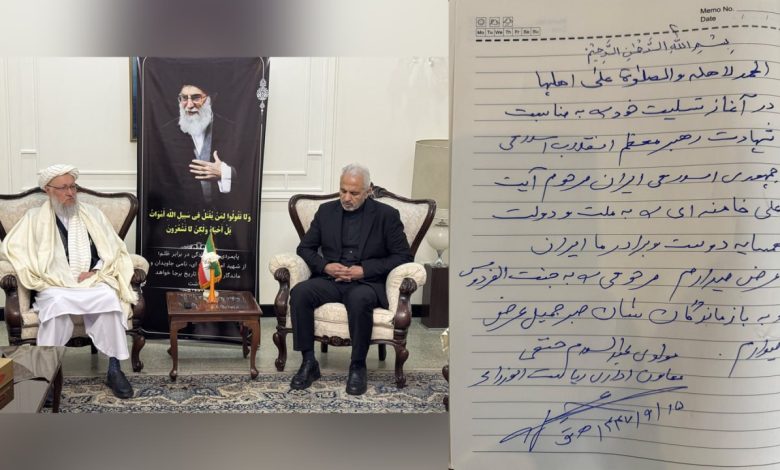 وَلَا تَقُولُوا لِمَنْ يُقْتَلُ فِي سَبِيلِ اللَّهِ أَمْوَاتٌ
بَلْ أَحْيَاءٌ وَلَكِنْ لَا تَشْعُرُونَ
در برابر ظلم؛
نامی جاویدان و
ماندگار
تاریخ برجا خواهد
Memo No.
Date
Mo Tu We Th Fr Sa Su
بسم الله الرحمن الرحیم
الحمد لاهله والصلوة علی اهلها
در آغاز تسلیت خود را به مناسبت
شهادت رهبر معظم انقلاب اسلامی
جمهوری اسلامی ایران مرحوم آیت
علی خامنه ای را به ملت و دولت
همسایه دوست و برادر ما ایران
عرض میدارم مرحومی را به جنت الفردوس
و به بازماندگان شان صبر جمیل عرض
میدارم.
مولوی عبدالسلام حنفی
معاون اداری ریاست الوزراء
۱۴۴۷/۹/۱۵